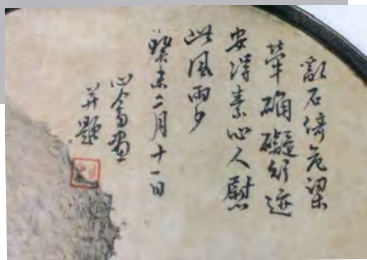 亂石倚危梁
犖确礙行迹
安得素心人慰
此風雨夕
癸未二月十一日
心畬畫
并題